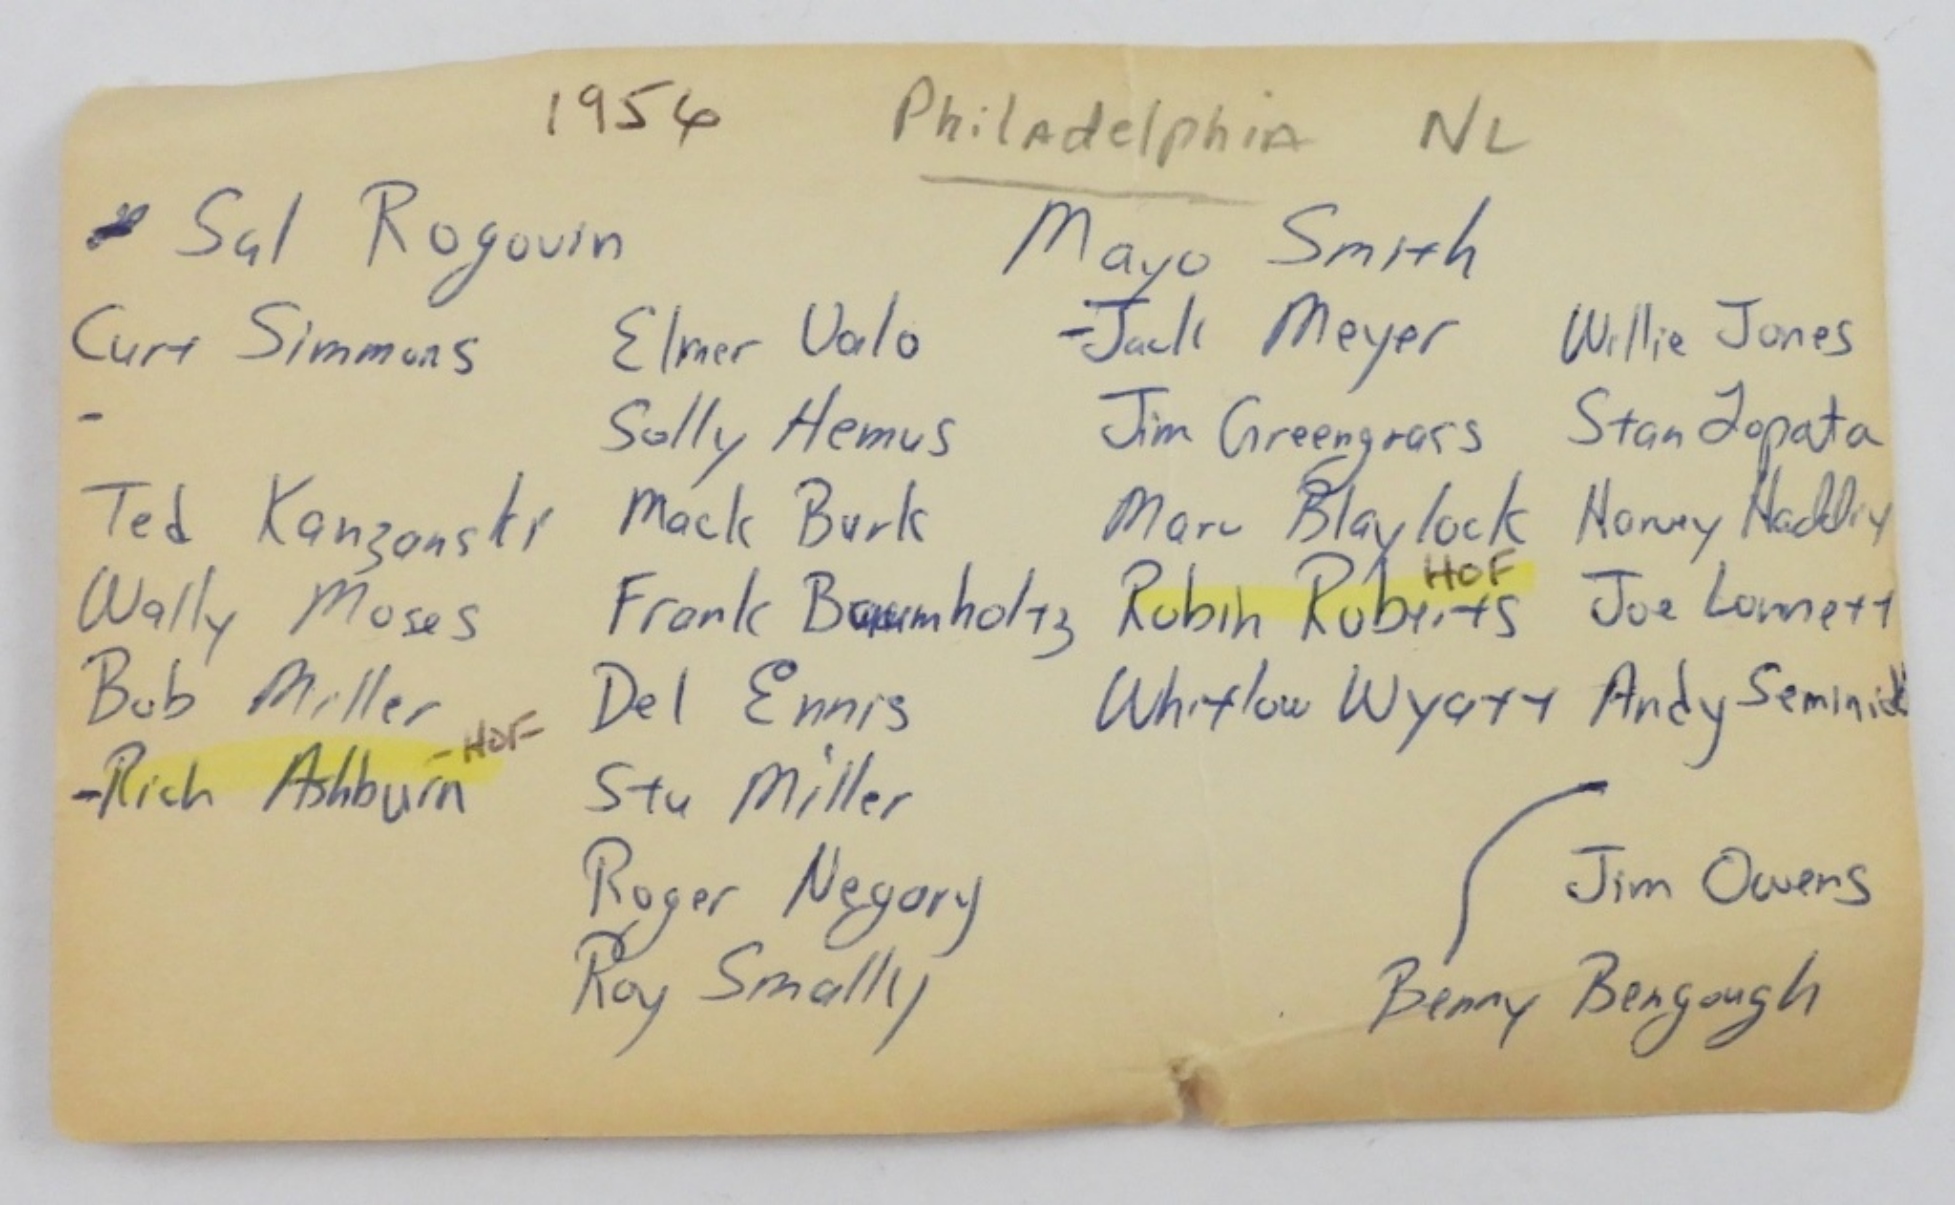 1956 Philadelphia NL
Sal Rogovin Mayo Smith
Curt Simmons Elmer Valo -Jack Meyer Willie Jones
- Solly Hemus Jim Greengrass Stan Lopata
Ted Kanzanski Mack Burk Marv Blaylock Harvey Haddix
Wally Moses Frank Baumholtz Robin Roberts HOF Joe Lonnett
Bob Miller Del Ennis Whitlow Wyatt Andy Seminick
-Rich Ashburn -HOF Stu Miller
Roger Negary Jim Owens
Roy Smally Benny Bengough